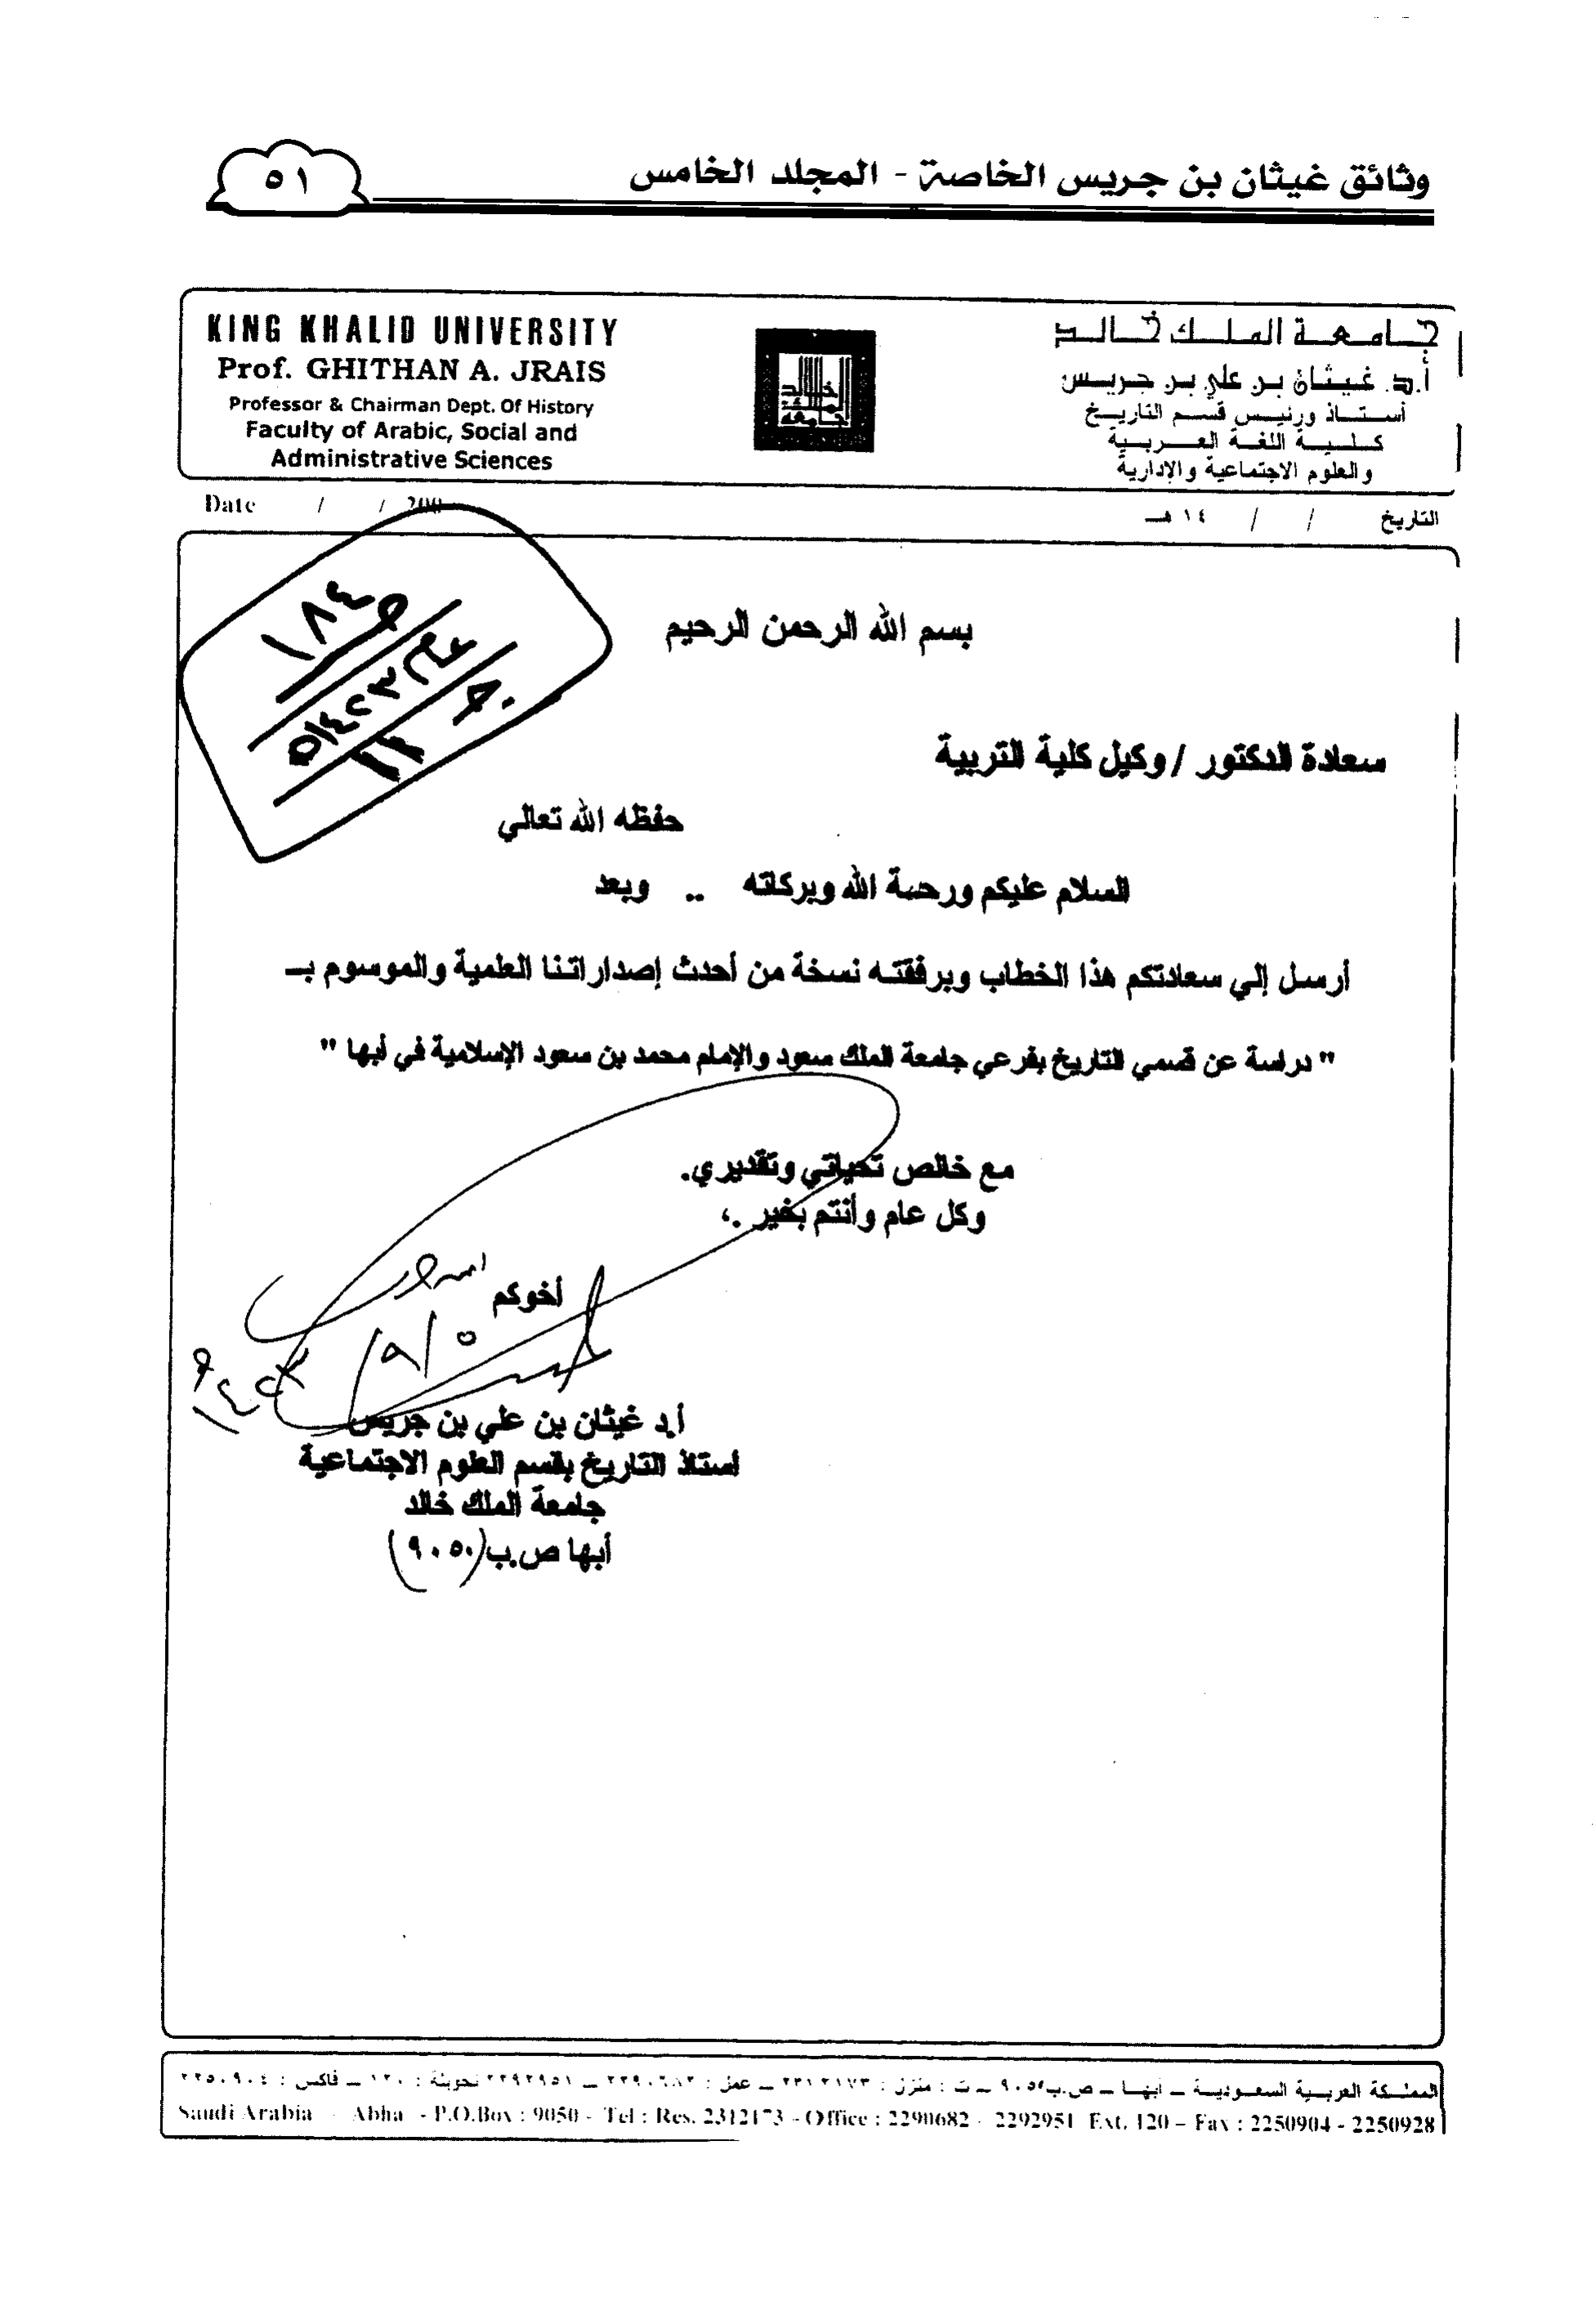 وثائق غيثان بن جريس الخاصة - المجلد الخامس
٥١
KING KHALID UNIVERSITY
Prof. GHITHAN A. JRAIS
Professor & Chairman Dept. Of History
Faculty of Arabic, Social and
Administrative Sciences
جامعة الملك خالد
أ.د. غيثان بن علي بن جريس
أستاذ ورئيس قسم التاريخ
كلية اللغة العربية
والعلوم الاجتماعية والإدارية
Date / / 200
التاريخ / / ١٤ هـ
١٨٤
بسم الله الرحمن الرحيم
سعادة الدكتور / وكيل كلية التربية
حفظه الله تعالي
السلام عليكم ورحمة الله وبركاته .. وبعد
أرسل إلي سعادتكم هذا الخطاب وبرفقته نسخة من أحدث إصداراتنا العلمية والموسوم بـ
" دراسة عن قسمي التاريخ بفرعي جامعة الملك سعود والإمام محمد بن سعود الإسلامية في أبها "
مع خالص تحياتي وتقديري.
وكل عام وأنتم بخير .،
أخوكم
٥/٩/
١٤٢٣
أ.د غيثان بن علي بن جريس
أستاذ التاريخ بقسم العلوم الاجتماعية
جامعة الملك خالد
أبها ص.ب(٩٠٥٠)
المملكة العربية السعودية ــ أبها ــ ص.ب ٩٠٥٠ ــ ت : منزل : ٢٣١٢١٧٣ ــ عمل : ٢٢٩٠٦٨٢ ــ ٢٢٩٢٩٥١ تحويلة : ١٢٠ ــ فاكس : ٢٢٥٠٩٠٤
Saudi Arabia - Abha - P.O.Box : 9050 - Tel : Res. 2312173 - Office : 2290682 - 2292951 Ext. 120 - Fax : 2250904 - 2250928